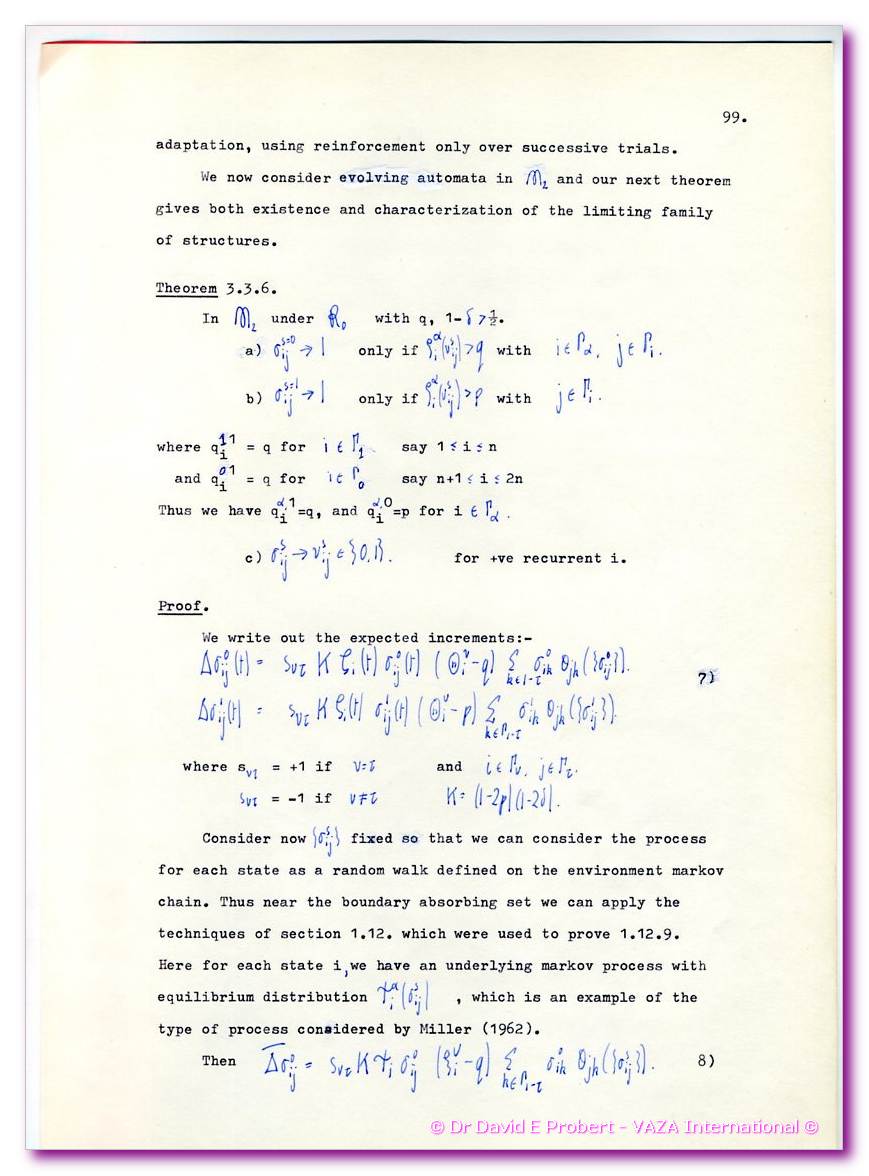 99.
adaptation, using reinforcement only over successive trials.
We now consider evolving automata in 𝔐₂ and our next theorem
gives both existence and characterization of the limiting family
of structures.
Theorem 3.3.6.
In 𝔐₂ under R₀ with q, 1-δ>½.
a) σᵢⱼˢ⁼⁰ → 1 only if ξᵢᵅ(νᵢⱼˢ)>q with i ∈ Γ_α, j ∈ Γᵢ.
b) σᵢⱼˢ⁼¹ → 1 only if ξᵢᵅ(νᵢⱼˢ)>p with j ∈ Γᵢ.
where qᵢ¹¹ = q for i ∈ Γ₁ say 1 ≤ i ≤ n
and qᵢ⁰¹ = q for i ∈ Γ₀ say n+1 ≤ i ≤ 2n
Thus we have qᵢ^α,1=q, and qᵢ^α,0=p for i ∈ Γ_α.
c) σᵢⱼˢ → νᵢⱼˢ ∈ {0,1}. for +ve recurrent i.
Proof.
We write out the expected increments:-
Δσᵢⱼ⁰(t) = s_ντ K ζᵢ(t) σᵢⱼ⁰(t) (Θᵢ^ν-q) Σ_k∈Γ₁₋τ σᵢₖ⁰ θⱼₖ({σᵢⱼ⁰}). 7)
Δσᵢⱼ¹(t) = s_ντ K ζᵢ(t) σᵢⱼ¹(t) (Θᵢ^ν-p) Σ_k∈Γ₁₋τ σᵢₖ¹ θⱼₖ({σᵢⱼ¹}).
where s_ντ = +1 if ν=τ and i ∈ Γ_ν, j ∈ Γ_τ.
s_ντ = -1 if ν≠τ K= (1-2p)(1-2δ).
Consider now {σᵢⱼˢ} fixed so that we can consider the process
for each state as a random walk defined on the environment markov
chain. Thus near the boundary absorbing set we can apply the
techniques of section 1.12. which were used to prove 1.12.9.
Here for each state i, we have an underlying markov process with
equilibrium distribution πᵢᵅ(σᵢⱼˢ) , which is an example of the
type of process considered by Miller (1962).
Then Δ̄σᵢⱼ⁰ = s_ντ K πᵢ σᵢⱼ⁰ (ξᵢ^ν-q) Σ_k∈Γ₁₋τ σᵢₖ⁰ θⱼₖ({σᵢⱼˢ}). 8)
© Dr David E Probert - VAZA International ©